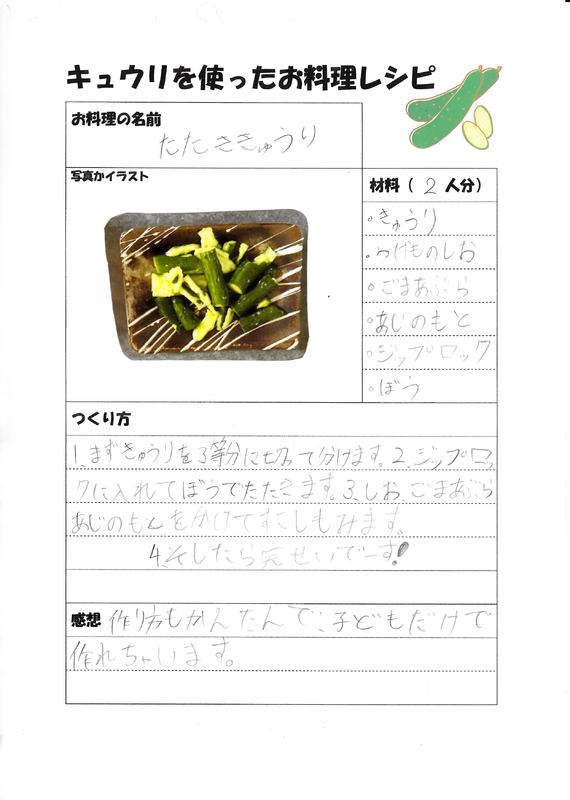 キュウリを使ったお料理レシピ
お料理の名前
たたききゅうり
写真かイラスト
材料（2人分）
・きゅうり
・つけものしお
・ごまあぶら
・あじのもと
・ジップロック
・ぼう
つくり方
1.まずきゅうりを3等分に切って分けます。2.ジップロッ
クに入れてぼうでたたきます。3.しお、ごまあぶら
あじのもとをかけてすこしもみます。
4.そしたら完せいでーす!
感想 作り方もかんたんで、子どもだけで
作れちゃいます。